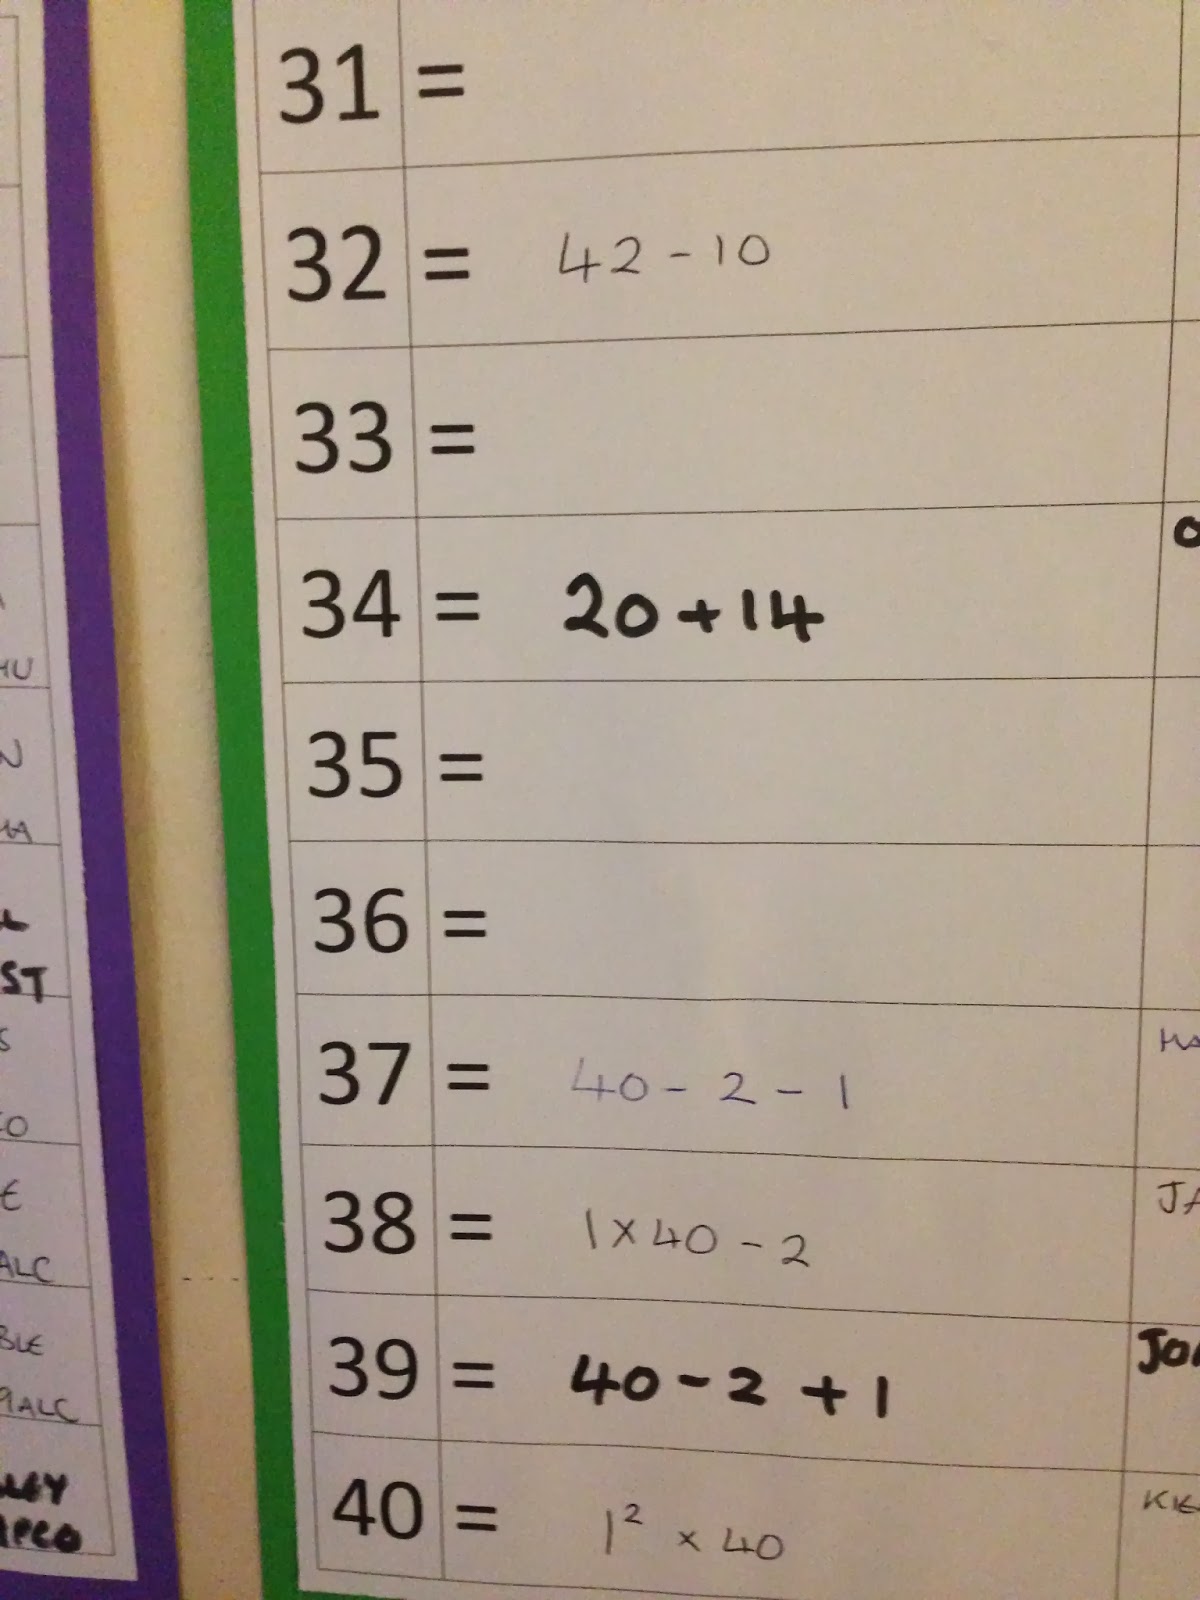 31 =
32 = 42 - 10
33 =
34 = 20 + 14
35 =
36 =
37 = 40 - 2 - 1
38 = 1 x 40 - 2
39 = 40 - 2 + 1
40 = 1² x 40
HU
N
HA
ST
S
CO
E
ALC
BLE
9ALC
MA
JA